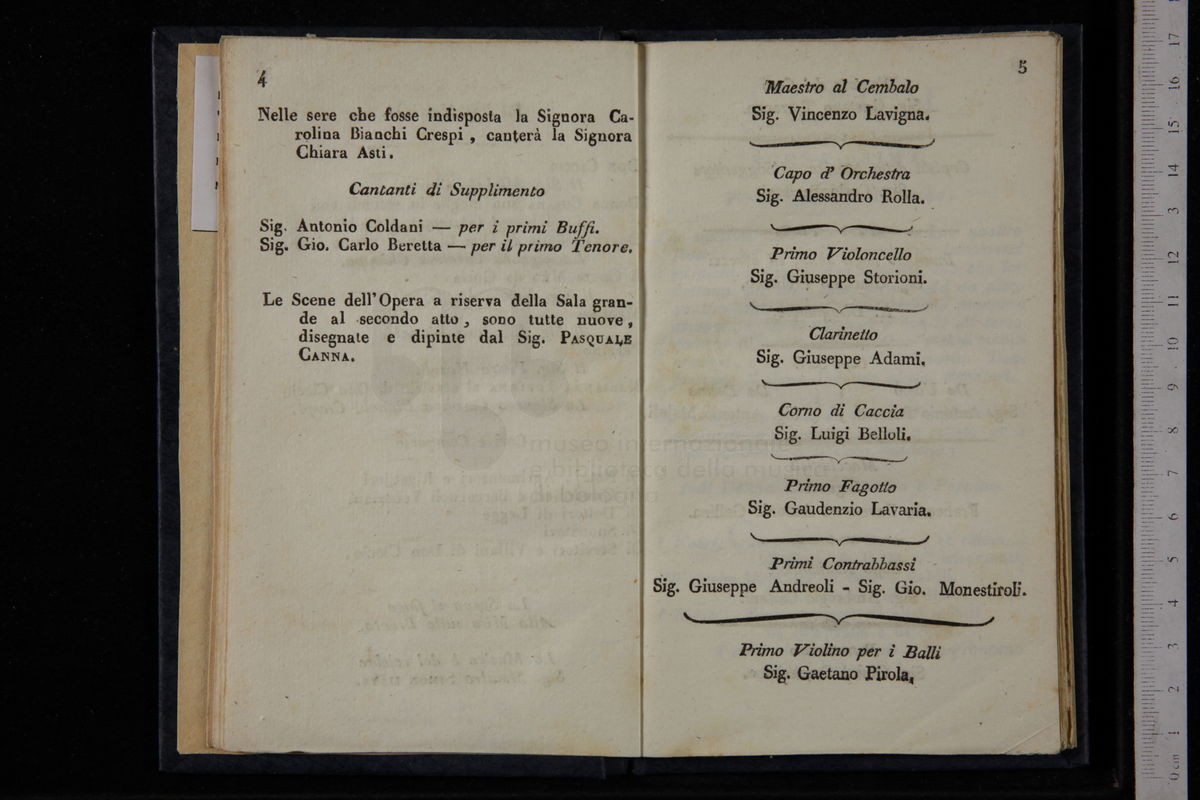 4
Nelle sere che fosse indisposta la Signora Ca-
rolina Bianchi Crespi, canterà la Signora
Chiara Asti.
Cantanti di Supplimento
Sig. Antonio Coldani — per i primi Buffi.
Sig. Gio. Carlo Beretta — per il primo Tenore.
Le Scene dell'Opera a riserva della Sala gran-
de al secondo atto, sono tutte nuove,
disegnate e dipinte dal Sig. PASQUALE
CANNA.
museo internazionale
e biblioteca della musica
di bologna
5
Maestro al Cembalo
Sig. Vincenzo Lavigna.
Capo d'Orchestra
Sig. Alessandro Rolla.
Primo Violoncello
Sig. Giuseppe Storioni.
Clarinetto
Sig. Giuseppe Adami.
Corno di Caccia
Sig. Luigi Belloli.
Primo Fagotto
Sig. Gaudenzio Lavaria.
Primi Contrabbassi
Sig. Giuseppe Andreoli - Sig. Gio. Monestiroli.
Primo Violino per i Balli
Sig. Gaetano Pirola.
17
16
15
14
13
12
11
10
9
8
7
6
5
4
3
2
1
0 cm